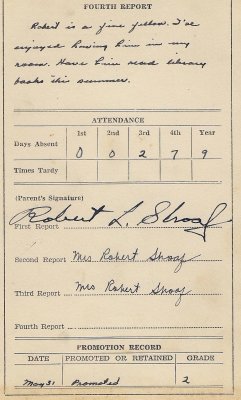 FOURTH REPORT
Robert is a fine fellow. I've
enjoyed having him in my
room. Have him read library
books this summer.
ATTENDANCE
1st 2nd 3rd 4th Year
Days Absent 0 0 2 7 9
Times Tardy
(Parent's Signature)
Robert L. Shoaf
First Report
Second Report Mrs Robert Shoaf
Third Report Mrs Robert Shoaf
Fourth Report
PROMOTION RECORD
DATE PROMOTED OR RETAINED GRADE
May 31 Promoted 2